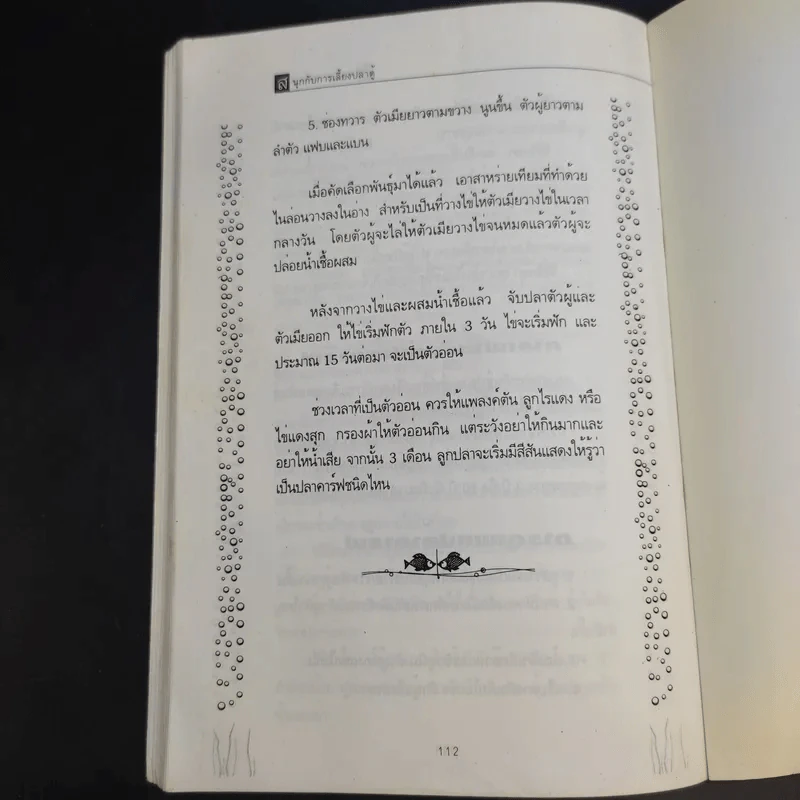 สนุกกับการเลี้ยงปลาตู้
5. ช่องทวาร ตัวเมียยาวตามขวาง นูนขึ้น ตัวผู้ยาวตาม
ลำตัว แฟบและแบน
เมื่อคัดเลือกพันธุ์มาได้แล้ว เอาสาหร่ายเทียมที่ทำด้วย
ไนล่อนวางลงในอ่าง สำหรับเป็นที่วางไข่ให้ตัวเมียวางไข่ในเวลา
กลางวัน โดยตัวผู้จะไล่ให้ตัวเมียวางไข่จนหมดแล้วตัวผู้จะ
ปล่อยน้ำเชื้อผสม
หลังจากวางไข่และผสมน้ำเชื้อแล้ว จับปลาตัวผู้และ
ตัวเมียออก ให้ไข่เริ่มฟักตัว ภายใน 3 วัน ไข่จะเริ่มฟัก และ
ประมาณ 15 วันต่อมา จะเป็นตัวอ่อน
ช่วงเวลาที่เป็นตัวอ่อน ควรให้แพลงค์ตัน ลูกไรแดง หรือ
ไข่แดงสุก กรองผ้าให้ตัวอ่อนกิน แต่ระวังอย่าให้กินมากและ
อย่าให้น้ำเสีย จากนั้น 3 เดือน ลูกปลาจะเริ่มมีสีสันแสดงให้รู้ว่า
เป็นปลาคาร์ฟชนิดไหน
112